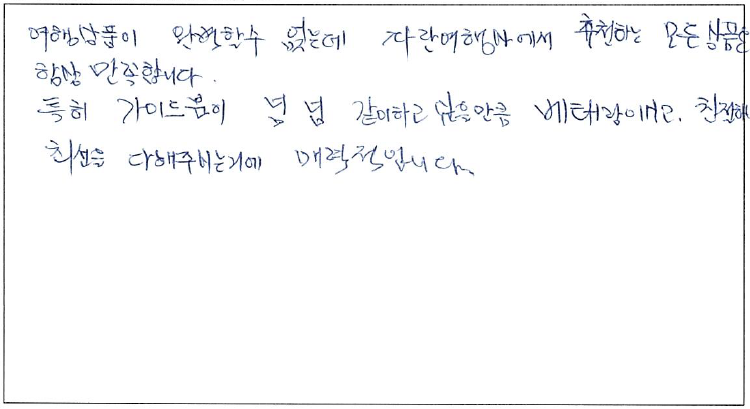 여행상품이 완벽할수 없는데 자란여행사에서 추천하는 모든 상품은
항상 만족합니다.
특히 가이드분이 넘 넘 같이하고 싶을만큼 베테랑이시고, 친절하
최선을 다해주시는거에 매력적입니다.